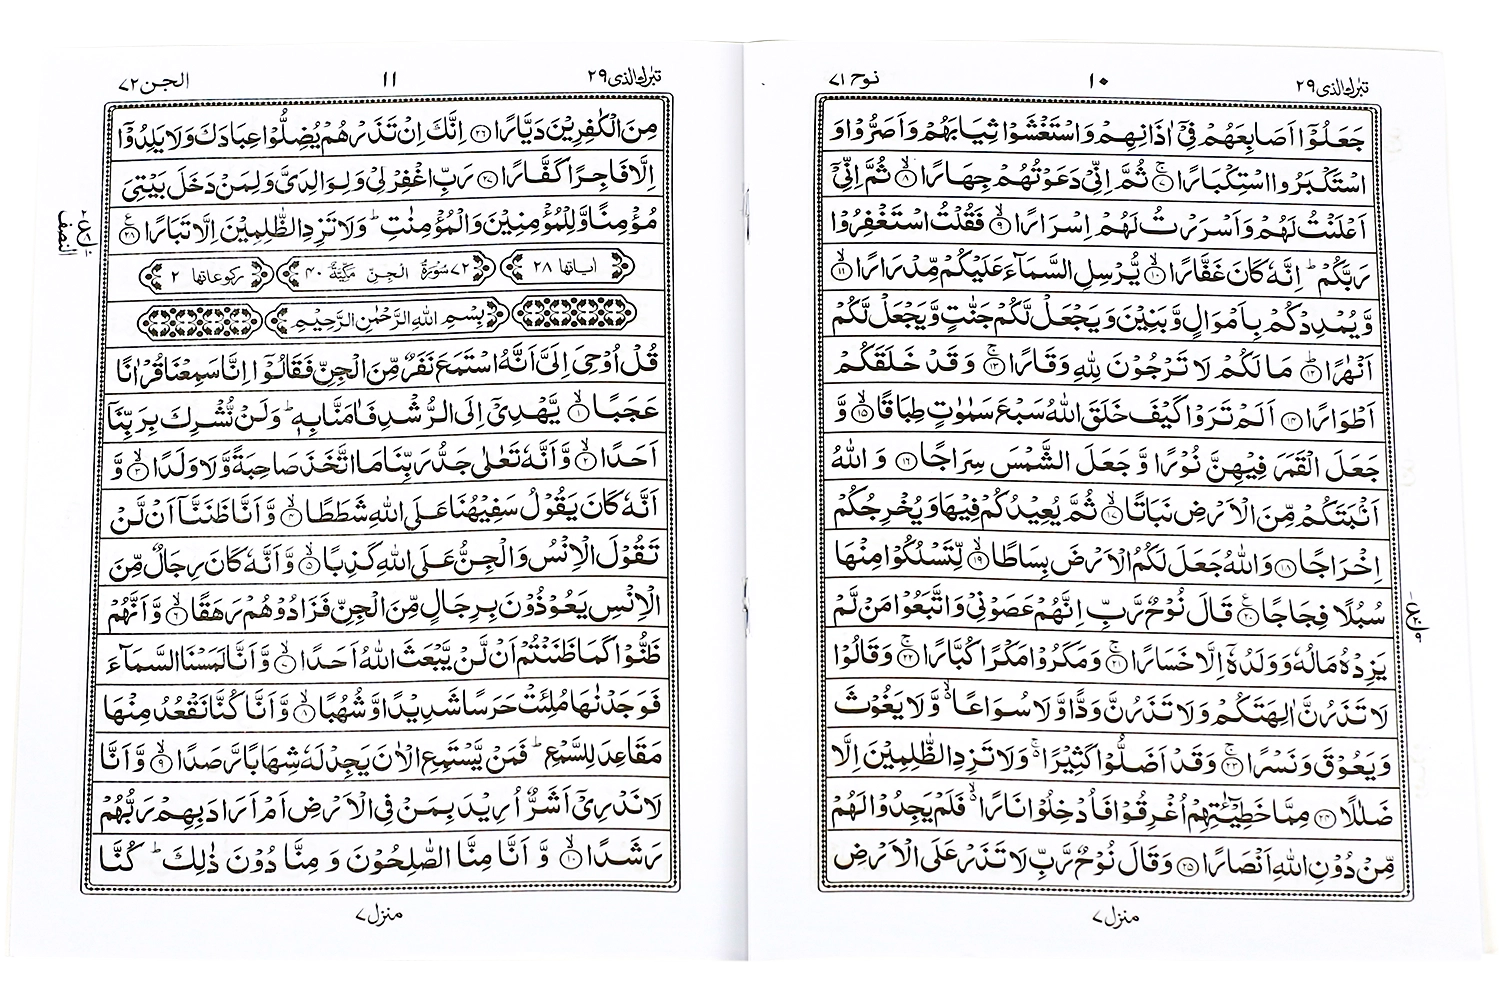 تبٰرك الذى ٢٩
١٠
نوح ٧١
جَعَلُوْۤا اَصَابِعَهُمْ فِیْۤ اٰذَانِهِمْ وَاسْتَغْشَوْا ثِیَابَهُمْ وَاَصَرُّوْا وَ
اسْتَكْبَرُوا اسْتِكْبَارًا ۚ‏﴿۷﴾ ثُمَّ اِنِّیْ دَعَوْتُهُمْ جِهَارًا ۙ‏﴿۸﴾ ثُمَّ اِنِّیْۤ
اَعْلَنْتُ لَهُمْ وَاَسْرَرْتُ لَهُمْ اِسْرَارًا ۙ‏﴿۹﴾ فَقُلْتُ اسْتَغْفِرُوْا
رَبَّكُمْ ؕ اِنَّهٗ كَانَ غَفَّارًا ۙ‏﴿۱۰﴾ یُّرْسِلِ السَّمَآءَ عَلَیْكُمْ مِّدْرَارًا ۙ‏﴿۱۱﴾
وَّیُمْدِدْكُمْ بِاَمْوَالٍ وَّبَنِیْنَ وَیَجْعَلْ لَّكُمْ جَنّٰتٍ وَّیَجْعَلْ لَّكُمْ
اَنْهٰرًا ؕ‏﴿۱۲﴾ مَا لَكُمْ لَا تَرْجُوْنَ لِلّٰهِ وَقَارًا ۚ‏﴿۱۳﴾ وَقَدْ خَلَقَكُمْ
اَطْوَارًا ‏﴿۱۴﴾ اَلَمْ تَرَوْا كَیْفَ خَلَقَ اللّٰهُ سَبْعَ سَمٰوٰتٍ طِبَاقًا ۙ‏﴿۱۵﴾ وَّ
جَعَلَ الْقَمَرَ فِیْهِنَّ نُوْرًا وَّجَعَلَ الشَّمْسَ سِرَاجًا ‏﴿۱۶﴾ وَاللّٰهُ
اَنْۢبَتَكُمْ مِّنَ الْاَرْضِ نَبَاتًا ۙ‏﴿۱۷﴾ ثُمَّ یُعِیْدُكُمْ فِیْهَا وَیُخْرِجُكُمْ
اِخْرَاجًا ‏﴿۱۸﴾ وَاللّٰهُ جَعَلَ لَكُمُ الْاَرْضَ بِسَاطًا ۙ‏﴿۱۹﴾ لِّتَسْلُكُوْا مِنْهَا
سُبُلًا فِجَاجًا ‏﴿۲۰﴾ قَالَ نُوْحٌ رَّبِّ اِنَّهُمْ عَصَوْنِیْ وَاتَّبَعُوْا مَنْ لَّمْ
یَزِدْهُ مَالُهٗ وَوَلَدُهٗۤ اِلَّا خَسَارًا ۚ‏﴿۲۱﴾ وَمَكَرُوْا مَكْرًا كُبَّارًا ۚ‏﴿۲۲﴾ وَقَالُوْا
لَا تَذَرُنَّ اٰلِهَتَكُمْ وَلَا تَذَرُنَّ وَدًّا وَّلَا سُوَاعًا ۙ وَّلَا یَغُوْثَ
وَیَعُوْقَ وَنَسْرًا ۚ‏﴿۲۳﴾ وَقَدْ اَضَلُّوْا كَثِیْرًا ۚ وَلَا تَزِدِ الظّٰلِمِیْنَ اِلَّا
ضَلٰلًا ‏﴿۲۴﴾ مِمَّا خَطِیْٓـٰٔتِهِمْ اُغْرِقُوْا فَاُدْخِلُوْا نَارًا ۙ فَلَمْ یَجِدُوْا لَهُمْ
مِّنْ دُوْنِ اللّٰهِ اَنْصَارًا ‏﴿۲۵﴾ وَقَالَ نُوْحٌ رَّبِّ لَا تَذَرْ عَلَی الْاَرْضِ
منزل ٧
تبٰرك الذى ٢٩
١١
الجن ٧٢
مِنَ الْكٰفِرِیْنَ دَیَّارًا ‏﴿۲۶﴾ اِنَّكَ اِنْ تَذَرْهُمْ یُضِلُّوْا عِبَادَكَ وَلَا یَلِدُوْۤا
اِلَّا فَاجِرًا كَفَّارًا ‏﴿۲۷﴾ رَبِّ اغْفِرْ لِیْ وَلِوَالِدَیَّ وَلِمَنْ دَخَلَ بَیْتِیَ
مُؤْمِنًا وَّلِلْمُؤْمِنِیْنَ وَالْمُؤْمِنٰتِ ؕ وَلَا تَزِدِ الظّٰلِمِیْنَ اِلَّا تَبَارًا ‏﴿۲۸﴾
النصف
اٰیاتها ٢٨ ٧٢ سُوْرَةُ الْجِنِّ مَكِّیَّةٌ ٤٠ ركوعاتها ٢
بِسْمِ اللّٰهِ الرَّحْمٰنِ الرَّحِیْمِ
قُلْ اُوْحِیَ اِلَیَّ اَنَّهُ اسْتَمَعَ نَفَرٌ مِّنَ الْجِنِّ فَقَالُوْۤا اِنَّا سَمِعْنَا قُرْاٰنًا
عَجَبًا ۙ‏﴿۱﴾ یَّهْدِیْۤ اِلَی الرُّشْدِ فَاٰمَنَّا بِهٖ ؕ وَلَنْ نُّشْرِكَ بِرَبِّنَاۤ
اَحَدًا ۙ‏﴿۲﴾ وَّاَنَّهٗ تَعٰلٰی جَدُّ رَبِّنَا مَا اتَّخَذَ صَاحِبَةً وَّلَا وَلَدًا ۙ‏﴿۳﴾ وَّ
اَنَّهٗ كَانَ یَقُوْلُ سَفِیْهُنَا عَلَی اللّٰهِ شَطَطًا ۙ‏﴿۴﴾ وَّاَنَّا ظَنَنَّاۤ اَنْ لَّنْ
تَقُوْلَ الْاِنْسُ وَالْجِنُّ عَلَی اللّٰهِ كَذِبًا ۙ‏﴿۵﴾ وَّاَنَّهٗ كَانَ رِجَالٌ مِّنَ
الْاِنْسِ یَعُوْذُوْنَ بِرِجَالٍ مِّنَ الْجِنِّ فَزَادُوْهُمْ رَهَقًا ۙ‏﴿۶﴾ وَّاَنَّهُمْ
ظَنُّوْا كَمَا ظَنَنْتُمْ اَنْ لَّنْ یَّبْعَثَ اللّٰهُ اَحَدًا ۙ‏﴿۷﴾ وَّاَنَّا لَمَسْنَا السَّمَآءَ
فَوَجَدْنٰهَا مُلِئَتْ حَرَسًا شَدِیْدًا وَّشُهُبًا ۙ‏﴿۸﴾ وَّاَنَّا كُنَّا نَقْعُدُ مِنْهَا
مَقَاعِدَ لِلسَّمْعِ ؕ فَمَنْ یَّسْتَمِعِ الْاٰنَ یَجِدْ لَهٗ شِهَابًا رَّصَدًا ۙ‏﴿۹﴾ وَّاَنَّا
لَا نَدْرِیْۤ اَشَرٌّ اُرِیْدَ بِمَنْ فِی الْاَرْضِ اَمْ اَرَادَ بِهِمْ رَبُّهُمْ
رَشَدًا ۙ‏﴿۱۰﴾ وَّاَنَّا مِنَّا الصّٰلِحُوْنَ وَمِنَّا دُوْنَ ذٰلِكَ ؕ كُنَّا
منزل ٧